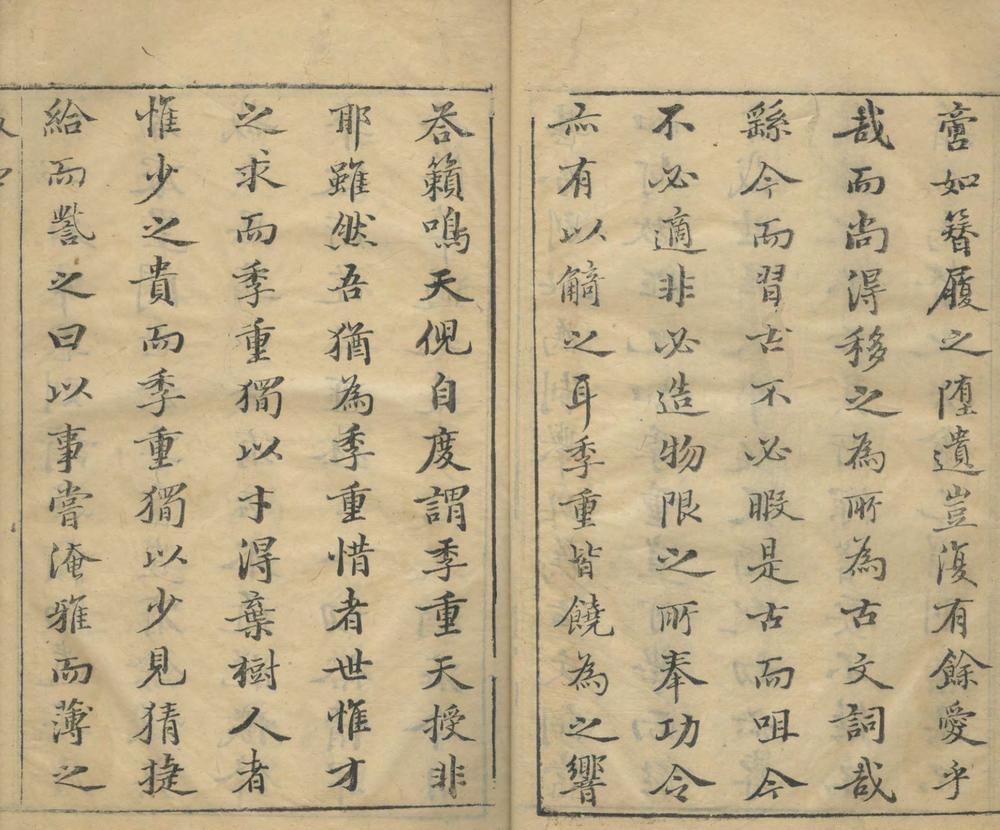 啻如簪履之墮遺豈復有餘愛乎
哉而尚得移之為所為古文詞哉
繇今而習古不必暇是古而咀今
不必適非必造物限之所奉功令
亦有以觭之耳季重皆饒為之響
荅籟鳴天倪自度謂季重天授非
耶雖然吾猶為季重惜者世惟才
之求而季重獨以才得棄樹人者
惟少之貴而季重獨以少見猜捷
給而訾之曰以事嘗淹雅而薄之